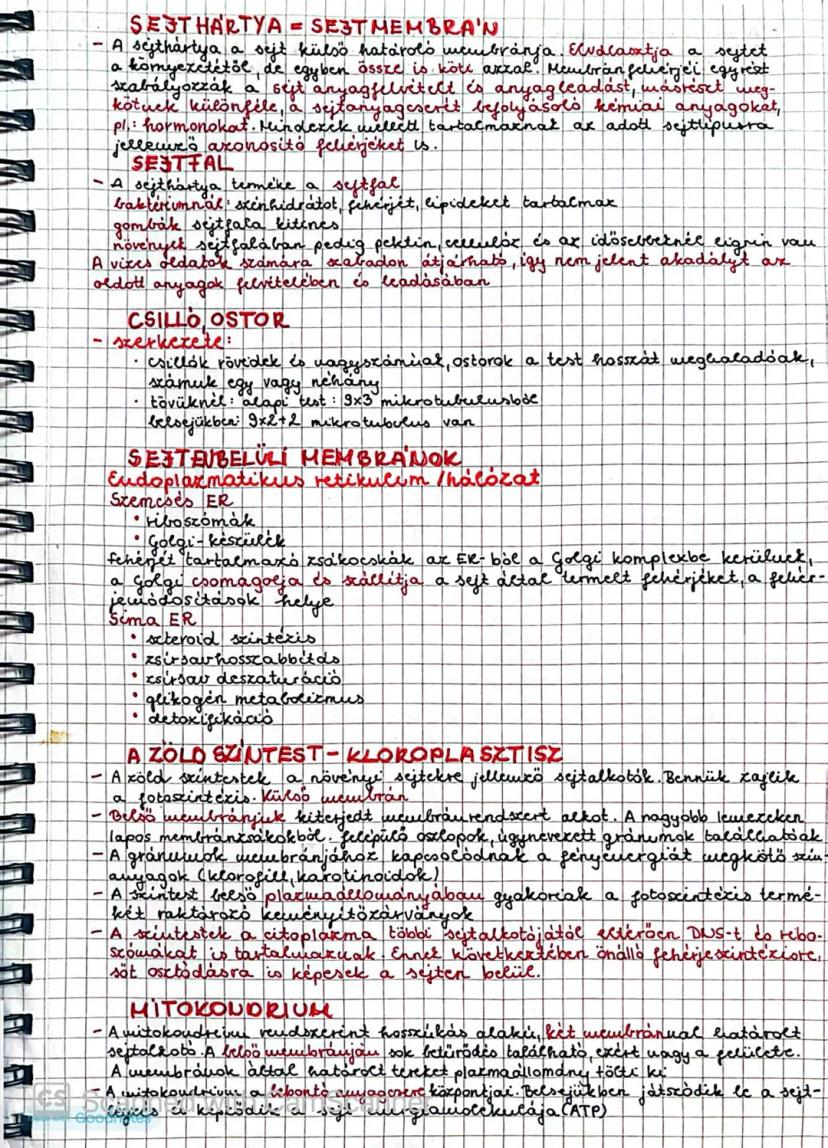 SEJTHÁRTYA = SEJTMEMBRÁN
- A sejthártya a sejt külső határoló membránja. Elválasztja a sejtet
a környezetétől, de egyben össze is köti azzal. Membránfehérjéi egyrészt
szabályozzák a sejt anyagfelvételt és anyagleadást, másrészt meg-
kötnek különféle, a sejtanyagcserét befolyásoló kémiai anyagokat,
pl.: hormonokat. Mindezek mellett tartalmaznak az adott sejttípusra
jellemző azonosító fehérjéket is.
SEJTFAL
- A sejthártya terméke a sejtfal
baktériumnál: szénhidrátot, fehérjét, lipideket tartalmaz
gombák sejtfala kitines
növények sejtfalában pedig pektin, cellulóz és az idősebbeknél lignin van
A vizes oldatok számára szabadon átjárható, így nem jelent akadályt az
oldott anyagok felvitelében és leadásában
CSILLÓ, OSTOR
- szerkezete:
· csillók rövidek és nagyszámúak, ostorok a test hosszát meghaladóak,
számuk egy vagy néhány
· tövüknél: alapi test: 9x3 mikrotubulusból
belsejükben 9x2+2 mikrotubulus van
SEJTENBELÜLI MEMBRÁNOK
Endoplazmatikus retikulum /hálózat
Szemcsés ER
• riboszómák
• Golgi-készülék
fehérjét tartalmazó zsákocskák az ER-ből a Golgi komplexbe kerülnek,
a Golgi csomagolja és szállítja a sejt által termelt fehérjéket, a fehér-
jemódosítások helye
Sima ER
• szteroid szintézis
• zsírsavhosszabbítás
• zsírsav deszaturáció
• glikogén metabolizmus
• detoxifikáció
A ZÖLD SZÍNTEST - KLOROPLASZTISZ
- A zöld színtestek a növényi sejtekre jellemző sejtalkotók. Bennük zajlik
a fotoszintézis. Külső membrán
- Belső membránjuk kiterjedt membránrendszert alkot. A nagyobb lemezeken
lapos membránzsákokból felépülő oszlopok, úgynevezett gránumok találhatóak
- A gránumok membránjához kapcsolódnak a fényenergiát megkötő szín-
anyagok (klorofill, karotinoidok)
- A színtest belső plazmaállományában gyakoriak a fotoszintézis termé-
két raktározó keményítőzárványok
- A színtestek a citoplazma többi sejtalkotójától eltérően DNS-t és ribo-
szómákat is tartalmaznak. Ennek következtében önálló fehérjeszintézisre,
sőt osztódásra is képesek a sejten belül.
MITOKONDRIUM
- A mitokondrium rendszerint hosszúkás alakú, két membránnal határolt
sejtalkotó. A belső membránján sok betűrődés található, ezért nagy a felülete.
A membránok által határolt tereket plazmaállomány tölti ki
- A mitokondrium a lebontó anyagcsere központjai. Belsejükben játszódik le a sejt-
légzés és képződik a sejt energiamolekulája (ATP)
CS Scanned with CamScanner
GoodNotes